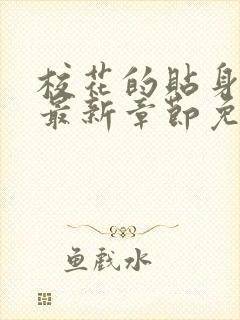 校花的貼身
最新章節免
鱼戲水